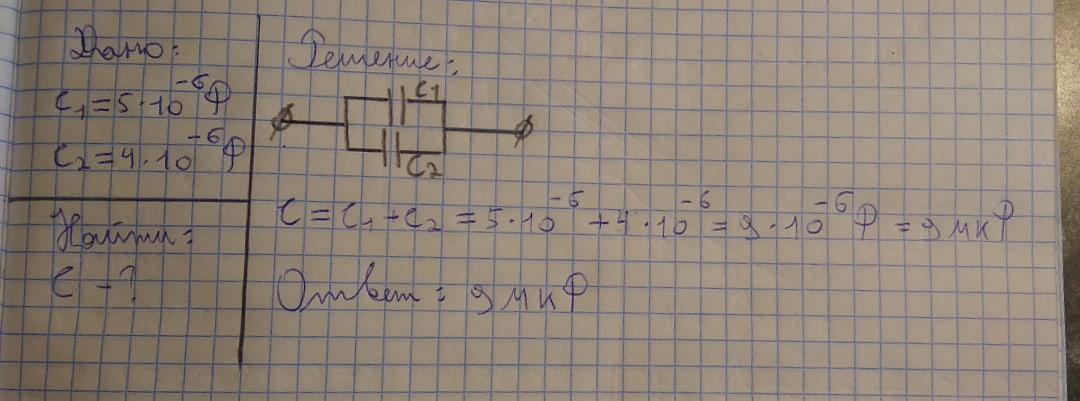 Дано:
C₁ = 5·10⁻⁶Ф
C₂ = 4·10⁻⁶Ф
Найти:
C - ?
Решение:
C1
C2
C = C₁ + C₂ = 5·10⁻⁶ + 4·10⁻⁶ = 9·10⁻⁶ Ф = 9 мкФ
Ответ: 9 мкФ